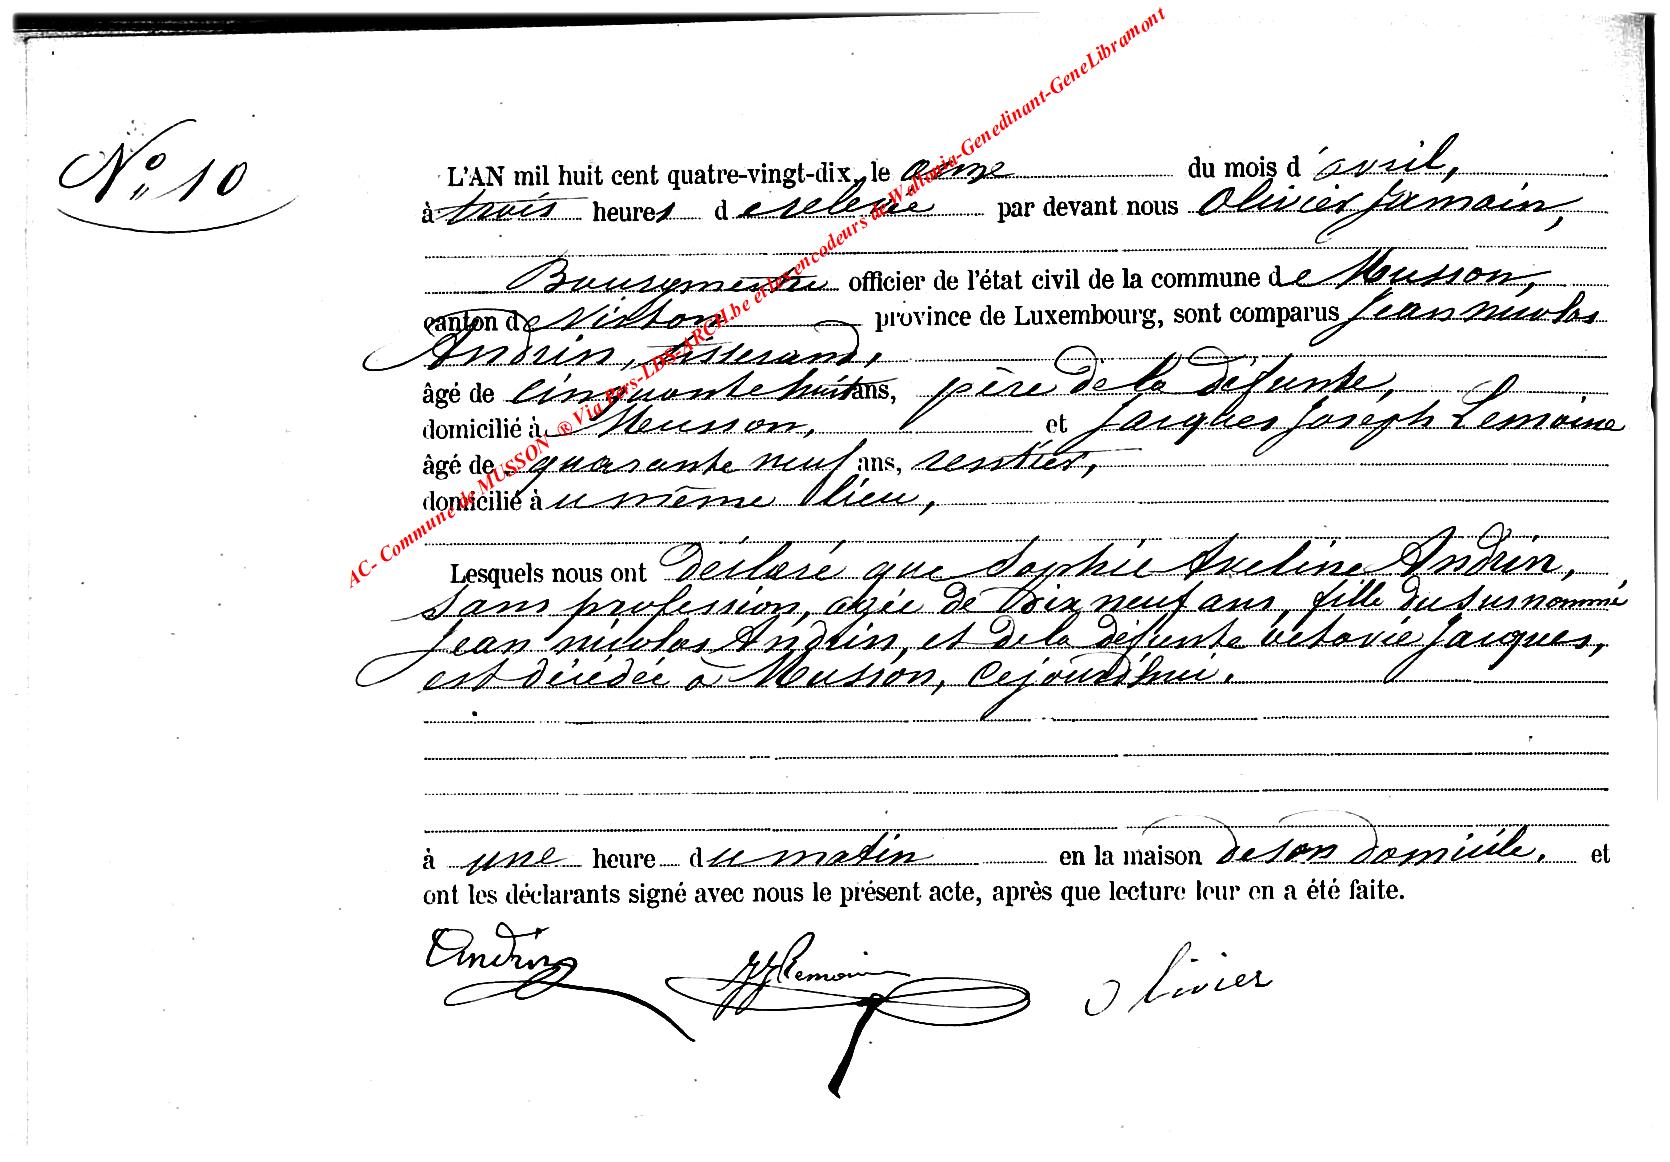 N° 10
L'AN mil huit cent quatre-vingt-dix, le onze du mois d'avril,
à trois heures de relevée par devant nous Olivier Jamain,
Bourgmestre officier de l'état civil de la commune de Musson,
canton de Virton province de Luxembourg, sont comparus Jean nicolas
Andrin, tisserand,
âgé de cinquante huit ans, père de la défunte,
domicilié à Musson, et Jacques Joseph Lemoine
âgé de quarante neuf ans, rentier,
domicilié au même lieu,
Lesquels nous ont déclaré que Sophie Aveline Andrin,
sans profession, agée de dix neuf ans, fille du susnommé
Jean nicolas Andrin, et de la défunte Octavie Jacques,
est décédée à Musson, cejourd'hui.
à une heure du matin en la maison de son domicile, et
ont les déclarants signé avec nous le présent acte, après que lecture leur en a été faite.
Andrin JJLemoine Olivier
AC- Commune de MUSSON ® Via Pers-LDS-ARCH.be et les encodeurs de Wallonia-Genedinant-GeneLibramont